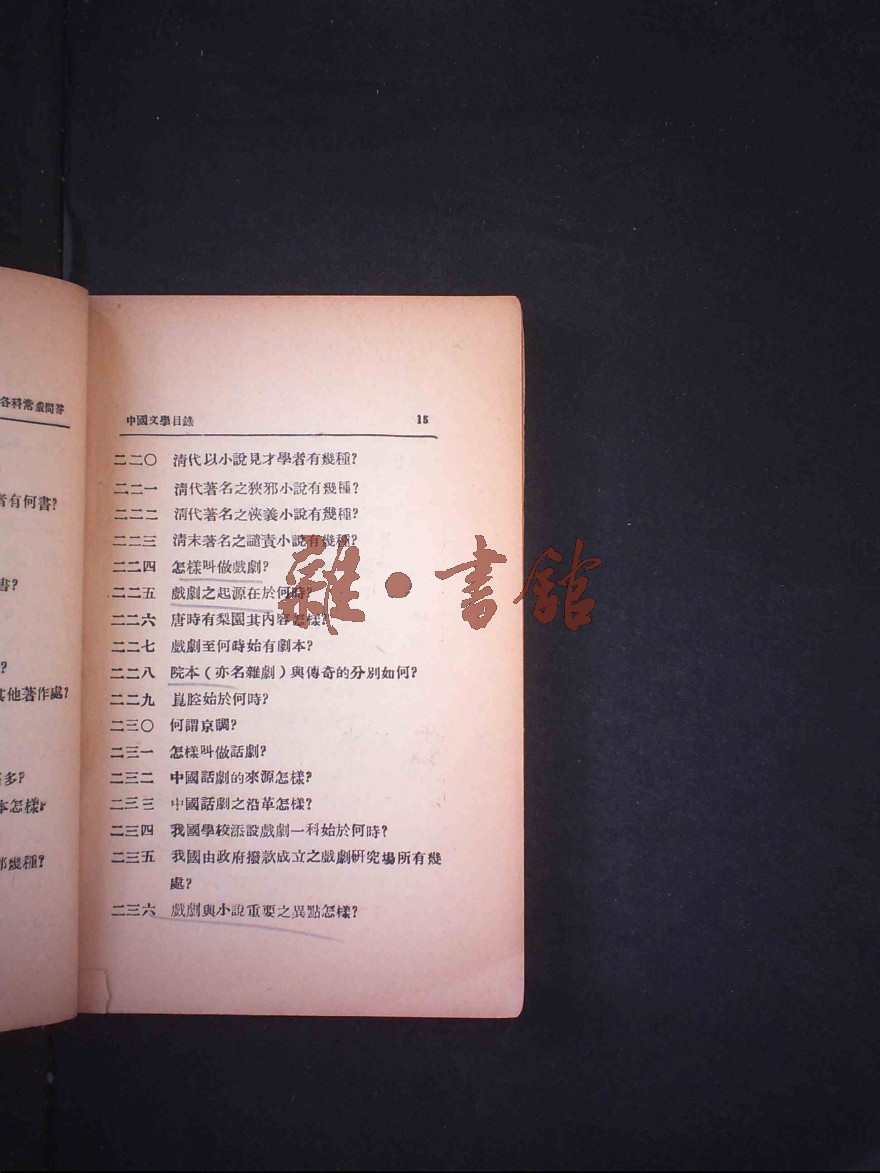 中國文學目錄 15
二二〇 清代以小說見才學者有幾種?
二二一 清代著名之狹邪小說有幾種?
二二二 清代著名之俠義小說有幾種?
二二三 清末著名之譴責小說有幾種?
二二四 怎樣叫做戲劇?
二二五 戲劇之起源在於何時?
二二六 唐時有梨園其內容怎樣?
二二七 戲劇至何時始有劇本?
二二八 院本(亦名雜劇)與傳奇的分別如何?
二二九 崑腔始於何時?
二三〇 何謂京調?
二三一 怎樣叫做話劇?
二三二 中國話劇的來源怎樣?
二三三 中國話劇之沿革怎樣?
二三四 我國學校添設戲劇一科始於何時?
二三五 我國由政府撥款成立之戲劇研究場所有幾
處?
二三六 戲劇與小說重要之異點怎樣?
各科常識問答
有何書?
書?
其他著作處?
多?
本怎樣
幾種?
雜·書館